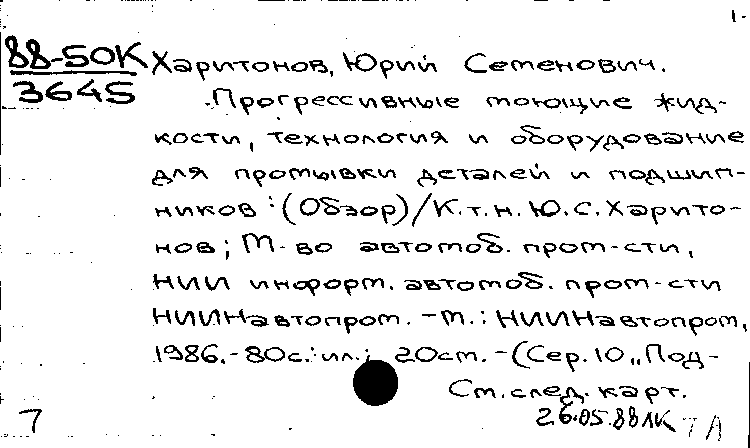 1-
88-50К
3645
Харитонов, Юрий Семенович.
Прогрессивные моющие жид-
кости, технология и оборудование
для промывки деталей и подшип-
ников : (Обзор) / К.т.н. Ю.С. Харито-
нов; М-во автомоб. пром-сти,
НИИ информ. автомоб. пром-сти
НИИНавтопром. - М. : НИИНавтопром,
1986. - 80с. : ил.; 20см. - (Сер. 10 „Под-
См. след. карт.
7
26.05.88 ЛК